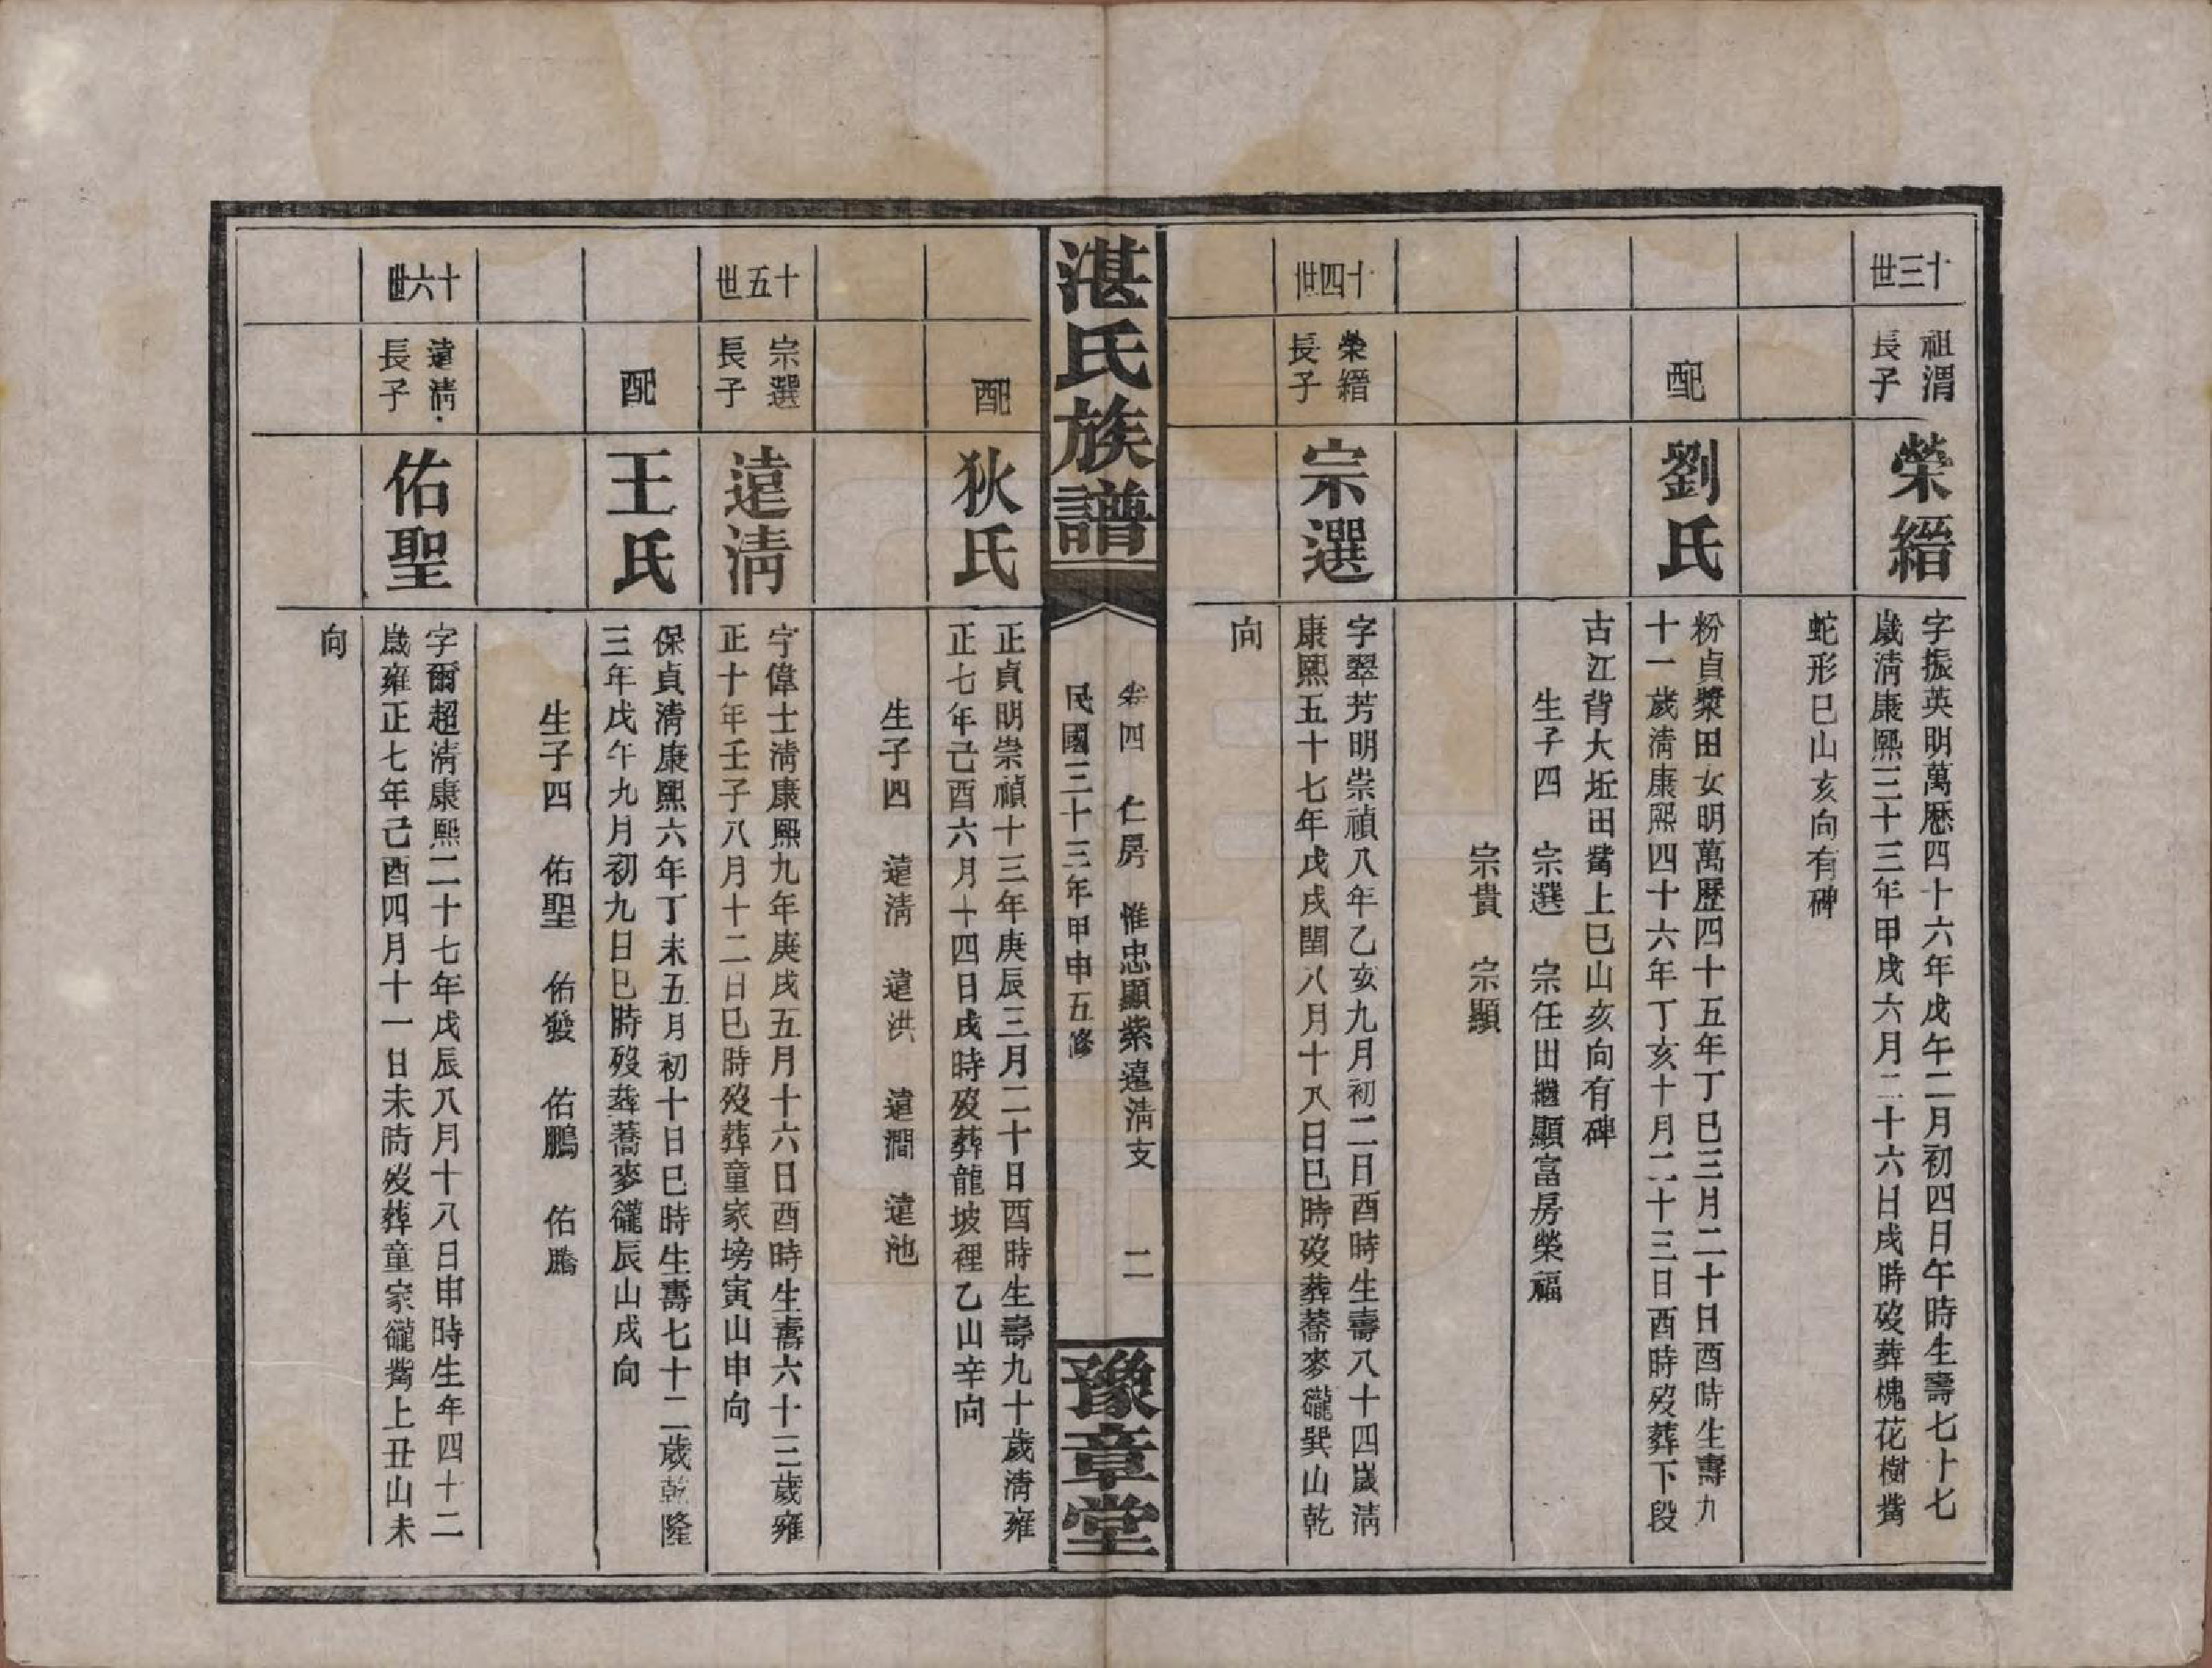 十三世
祖渭
長子
榮縉
字振英明萬歷四十六年戊午二月初四日午時生壽七十七
歲淸康熙三十三年甲戌六月二十六日戌時歿葬槐花樹嘴
蛇形巳山亥向有碑
配
劉氏
粉貞槳田女明萬歷四十五年丁巳三月二十日酉時生壽九
十一歲淸康熙四十六年丁亥十月二十三日酉時歿葬下段
古江背大坵田嘴上巳山亥向有碑
生子四 宗選 宗任出繼顯富房榮福
宗貴 宗顯
十四世
榮縉
長子
宗選
字翠芳明崇禎八年乙亥九月初二日酉時生壽八十四歲淸
康熙五十七年戊戌閏八月十八日巳時歿葬蕎麥巃巽山乾
向
湛氏族譜
卷四 仁房 惟忠顯紫遠淸支 二
民國三十三年甲申五修
豫章堂
配
狄氏
正貞明崇禎十三年庚辰三月二十日酉時生壽九十歲淸雍
正七年己酉六月十四日戌時歿葬龍坡裡乙山辛向
生子四 遠淸 遠洪 遠澗 遠池
十五世
宗選
長子
遠淸
字偉士淸康熙九年庚戌五月十六日酉時生壽六十三歲雍
正十年壬子八月十二日巳時歿葬童家塝寅山申向
配
王氏
保貞淸康熙六年丁未五月初十日巳時生壽七十二歲乾隆
三年戊午九月初九日巳時歿葬蕎麥巃辰山戌向
生子四 佑聖 佑發 佑鵬 佑騰
十六世
遠淸
長子
佑聖
字爾超淸康熙二十七年戊辰八月十八日申時生年四十二
歲雍正七年己酉四月十一日未時歿葬童家巃嘴上丑山未
向